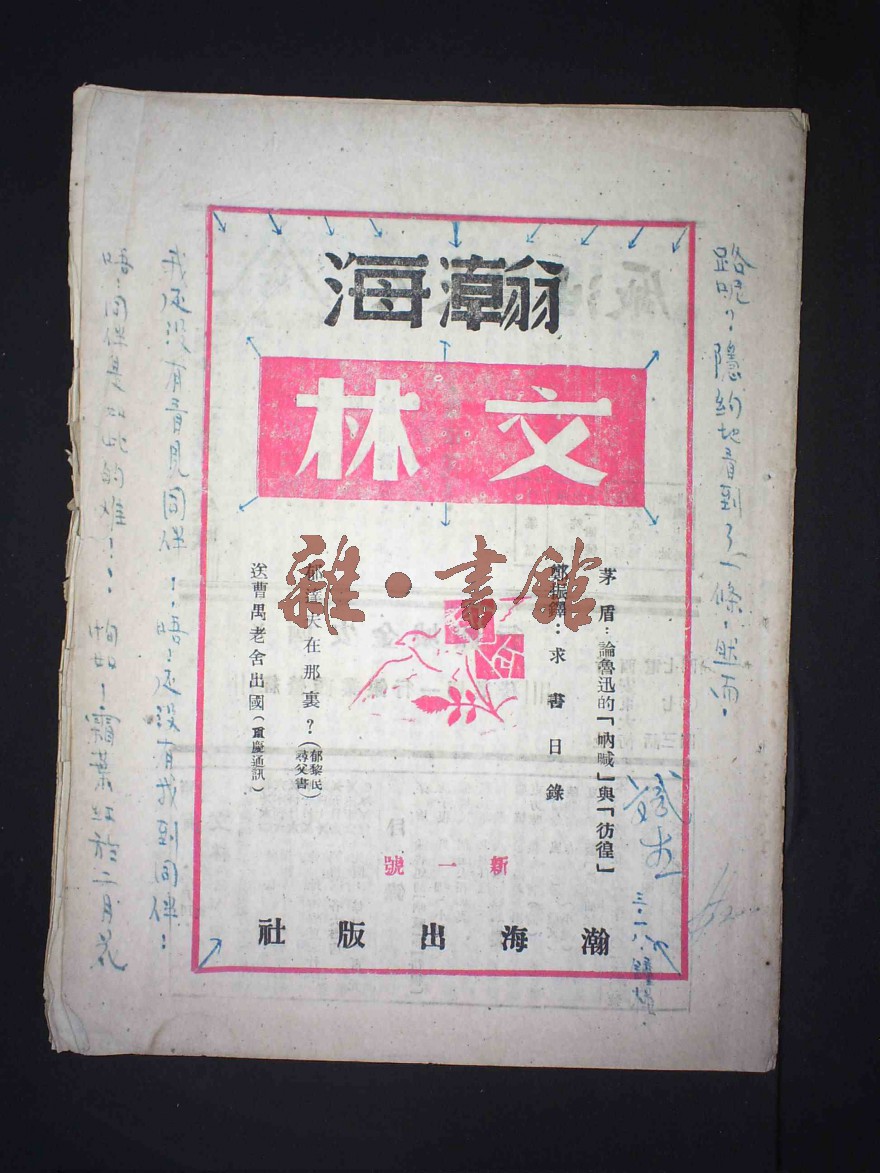 瀚海
文林
茅盾：論魯迅的「吶喊」與「彷徨」
鄭振鐸：求書日錄
郁達夫在那裏？（郁黎民尋父書）
送曹禺老舍出國（重慶通訊）
新一號
瀚海出版社
雜·書館
路呢？隱約地看到了一條，然而，
三·一八，
我还沒有看見同伴！唔！还沒有找到同伴！
霜葉红於二月花